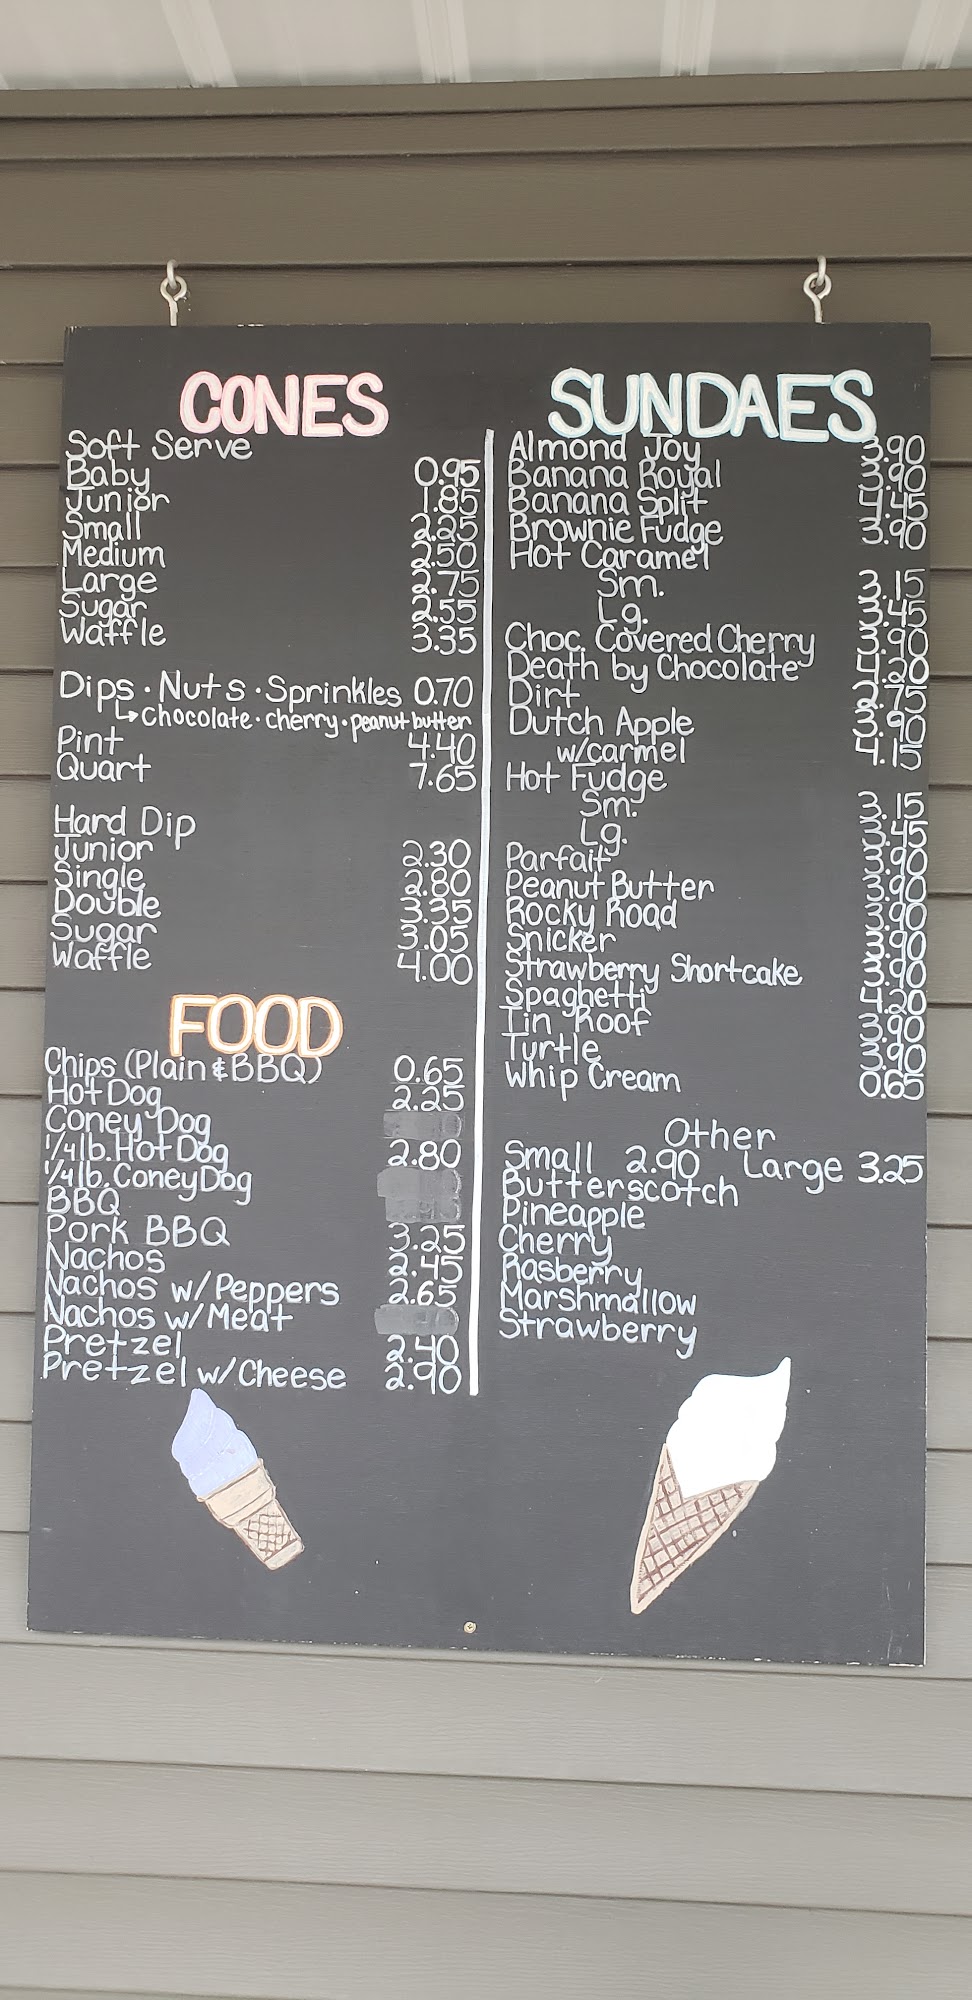 CONES
Soft Serve
Baby 0.95
Junior 1.85
Small 2.25
Medium 2.50
Large 2.75
Sugar 2.55
Waffle 3.35
Dips · Nuts · Sprinkles 0.70
↳ chocolate · cherry · peanut butter
Pint 4.40
Quart 7.65
Hard Dip
Junior 2.30
Single 2.80
Double 3.35
Sugar 3.05
Waffle 4.00
FOOD
Chips (Plain & BBQ) 0.65
Hot Dog 2.25
Coney Dog
1/4 lb. Hot Dog 2.80
1/4 lb. Coney Dog
BBQ
Pork BBQ 3.25
Nachos 2.45
Nachos w/ Peppers 2.65
Nachos w/ Meat
Pretzel 2.40
Pretzel w/ Cheese 2.90
SUNDAES
Almond Joy 3.90
Banana Royal 3.90
Banana Split 4.45
Brownie Fudge 3.90
Hot Caramel
Sm. 3.15
Lg. 3.45
Choc. Covered Cherry 3.90
Death by Chocolate 4.20
Dirt 2.75
Dutch Apple 3.90
w/carmel 4.15
Hot Fudge
Sm. 3.15
Lg. 3.45
Parfait 3.90
Peanut Butter 3.90
Rocky Road 3.90
Snicker 3.90
Strawberry Shortcake 3.90
Spaghetti 4.20
Tin Roof 3.90
Turtle 3.90
Whip Cream 0.65
Other
Small 2.90 Large 3.25
Butterscotch
Pineapple
Cherry
Rasberry
Marshmallow
Strawberry